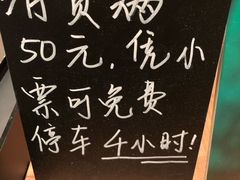 消费满
50元,凭小
票可免费
停车4小时!